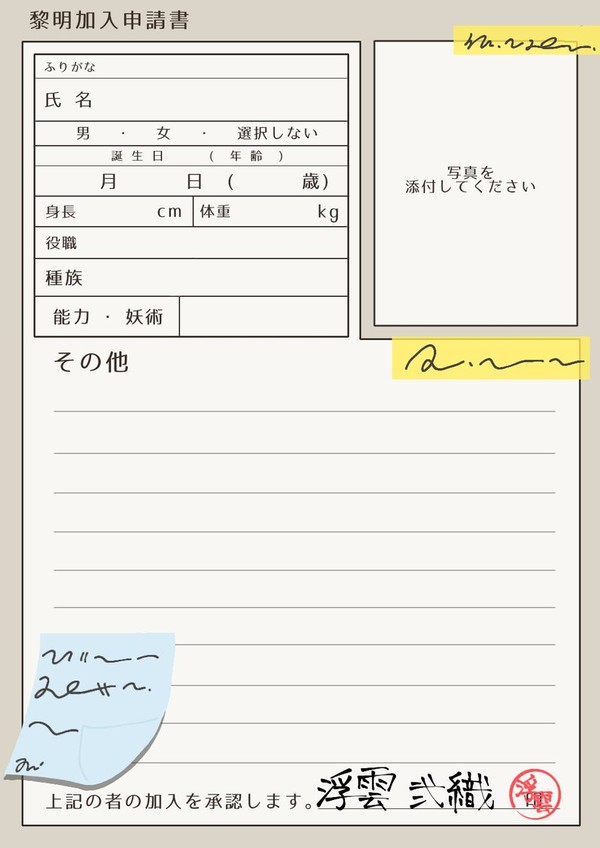 黎明加入申請書
ふりがな
氏 名
男 ・ 女 ・ 選択しない
誕生日 ( 年齢 )
月 日 ( 歳)
身長 cm 体重 kg
役職
種族
能力 ・ 妖術
写真を
添付してください
その他
上記の者の加入を承認します。浮雲 弐織 印
浮雲